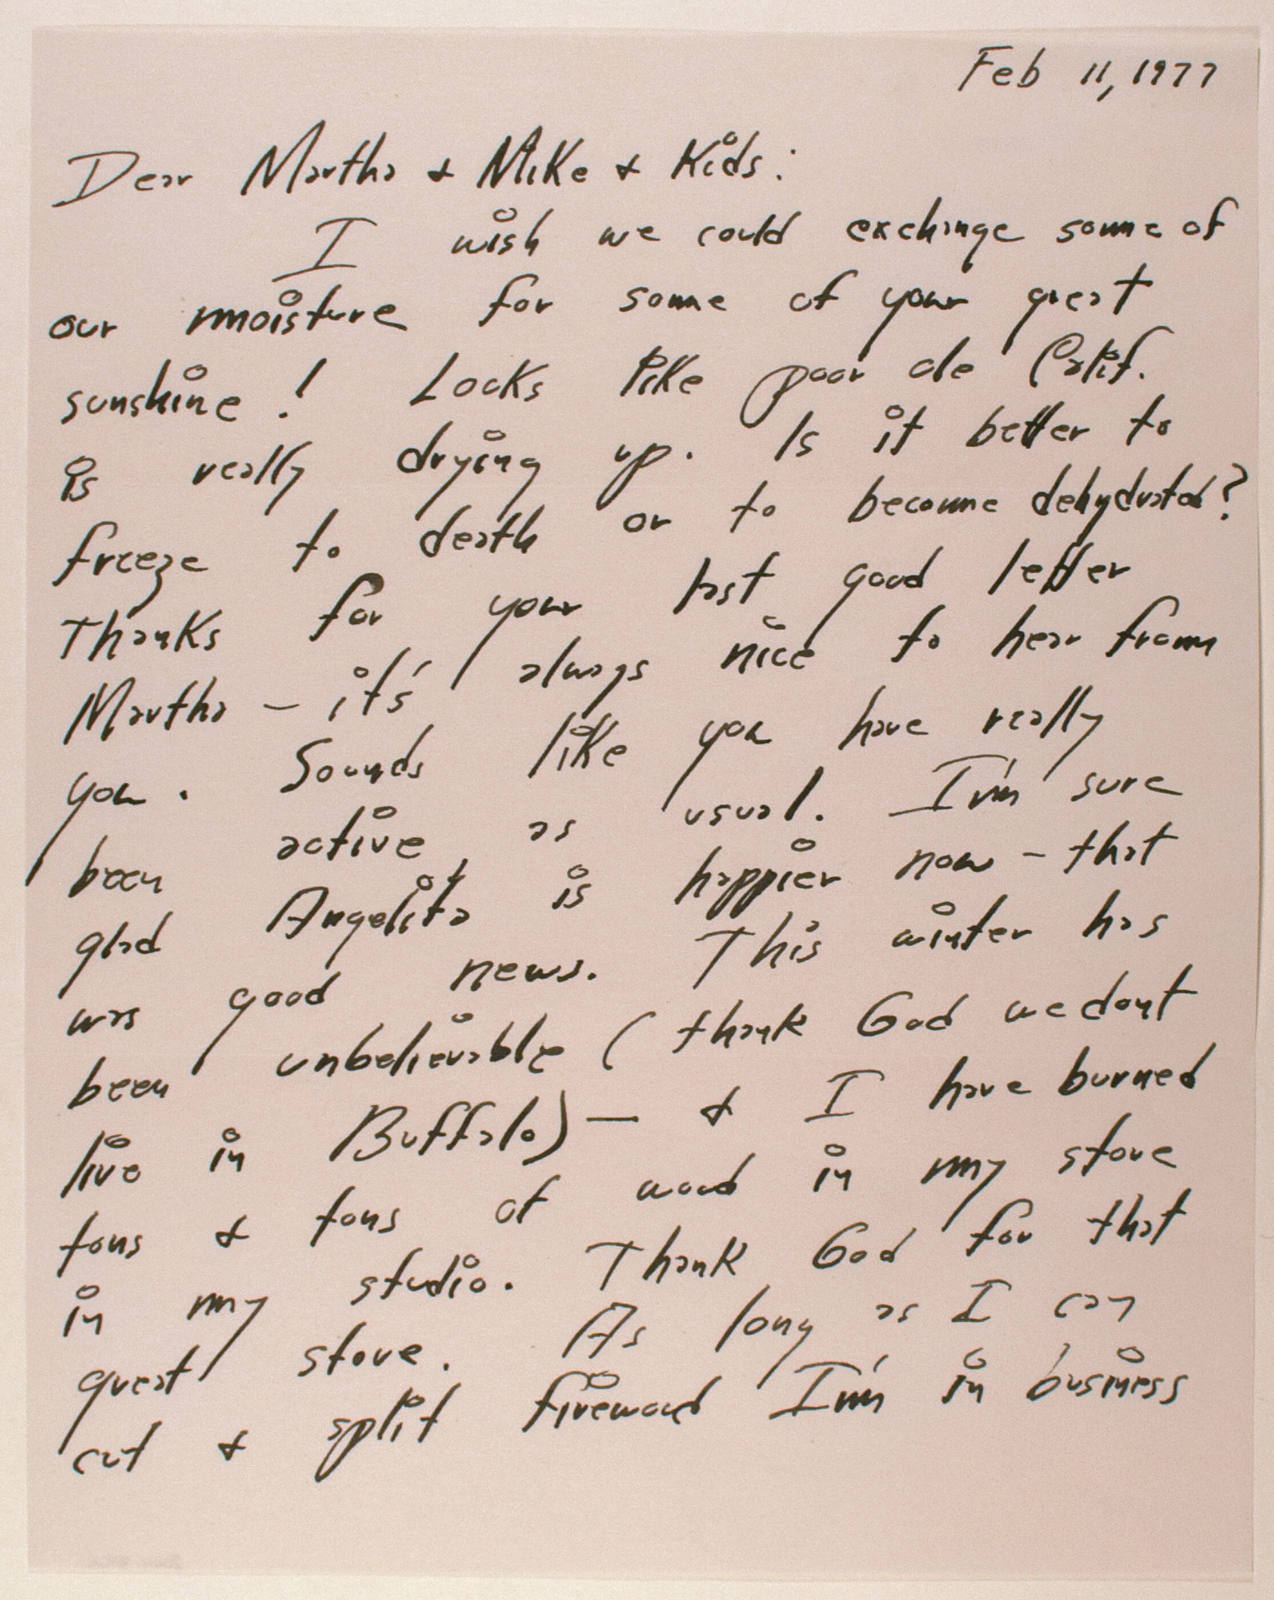 Feb 11, 1977
Dear Martha & Mike & Kids:
I wish we could exchange some of
our moisture for some of your great
sunshine! Looks like poor ole Calif.
is really drying up. Is it better to
freeze to death or to become dehydrated?
Thanks for your last good letter
Martha – it's always nice to hear from
you. Sounds like you have really
been active as usual. I'm sure
glad Angelita is happier now – that
was good news. This winter has
been unbelievable (thank God we dont
live in Buffalo) — & I have burned
tons & tons of wood in my stove
in my studio. Thank God for that
great stove. As long as I can
cut & split firewood I'm in business